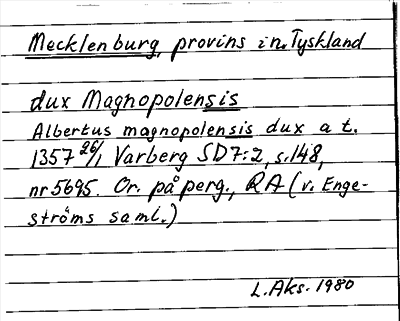 Mecklenburg, provins i n. Tyskland
dux Magnopolensis
Albertus magnopolensis dux a t.
1357 26/1 Varberg SD7:2, s.148,
nr 5695. Or. på perg., RA (v. Enge-
ströms saml.)
L. Aks. 1980